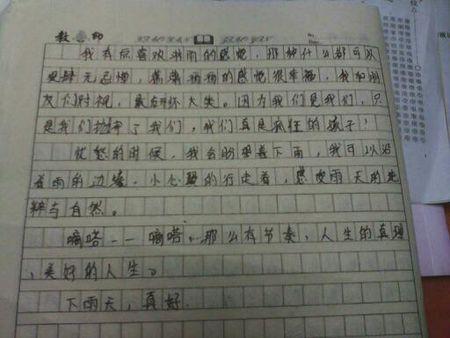 我有点喜欢淋雨的感觉,那种什么都可以
肆无忌惮,痛痛的感觉很幸福,我和朋
友们对视,哈哈大笑。因为我们是我们,只
是我们拉开了我们,我们真是疯狂的孩子!
忧愁的时候,我会盼望着下雨,我可以沿
着雨的边缘,小心翼的行走着,感受雨天的
与自然。
嘀嗒——嘀嗒。那么有节奏,人生的真理
、美好的人生。
下雨天,真好.